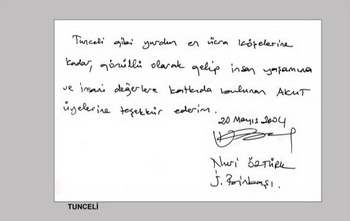 Tunceli gibi yurdun en ücra köşelerine
kadar, gönüllü olarak gelip insan yaşamına
ve insani değerlere katkıda bulunan AKUT
üyelerine teşekkür ederim.
20 Mayıs 2004
Nuri ÖZTÜRK
J. Binbaşı.
TUNCELİ